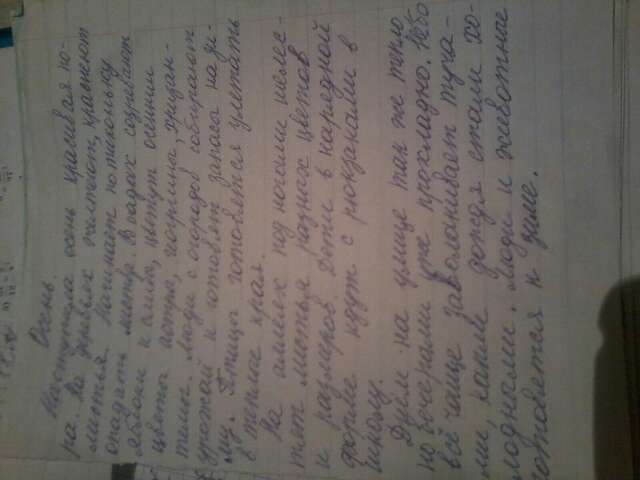 Осень.
Наступила осень красивая по-
ра. На деревьях желтеют, краснеют
листья. Начинают потихоньку
опадать листья. В садах созревают
яблоки и слива, цветут осенние
цветы астра, георгина, хризан-
тема. Люди с огородов собирают
урожай и готовят запасы на зи-
му. Птицы готовятся улетать
в теплые края.
На аллеях под ногами шелес-
тят листья разных цветов
и размеров. Дети в нарядной
форме идут с рюкзаками в
школу.
Днём на улице так же тепло
но вечерами уже прохладно. Небо
всё чаще заволакивает туча-
ми, капли дождя стали хо-
лодными. Люди и животные
готовятся к зиме.